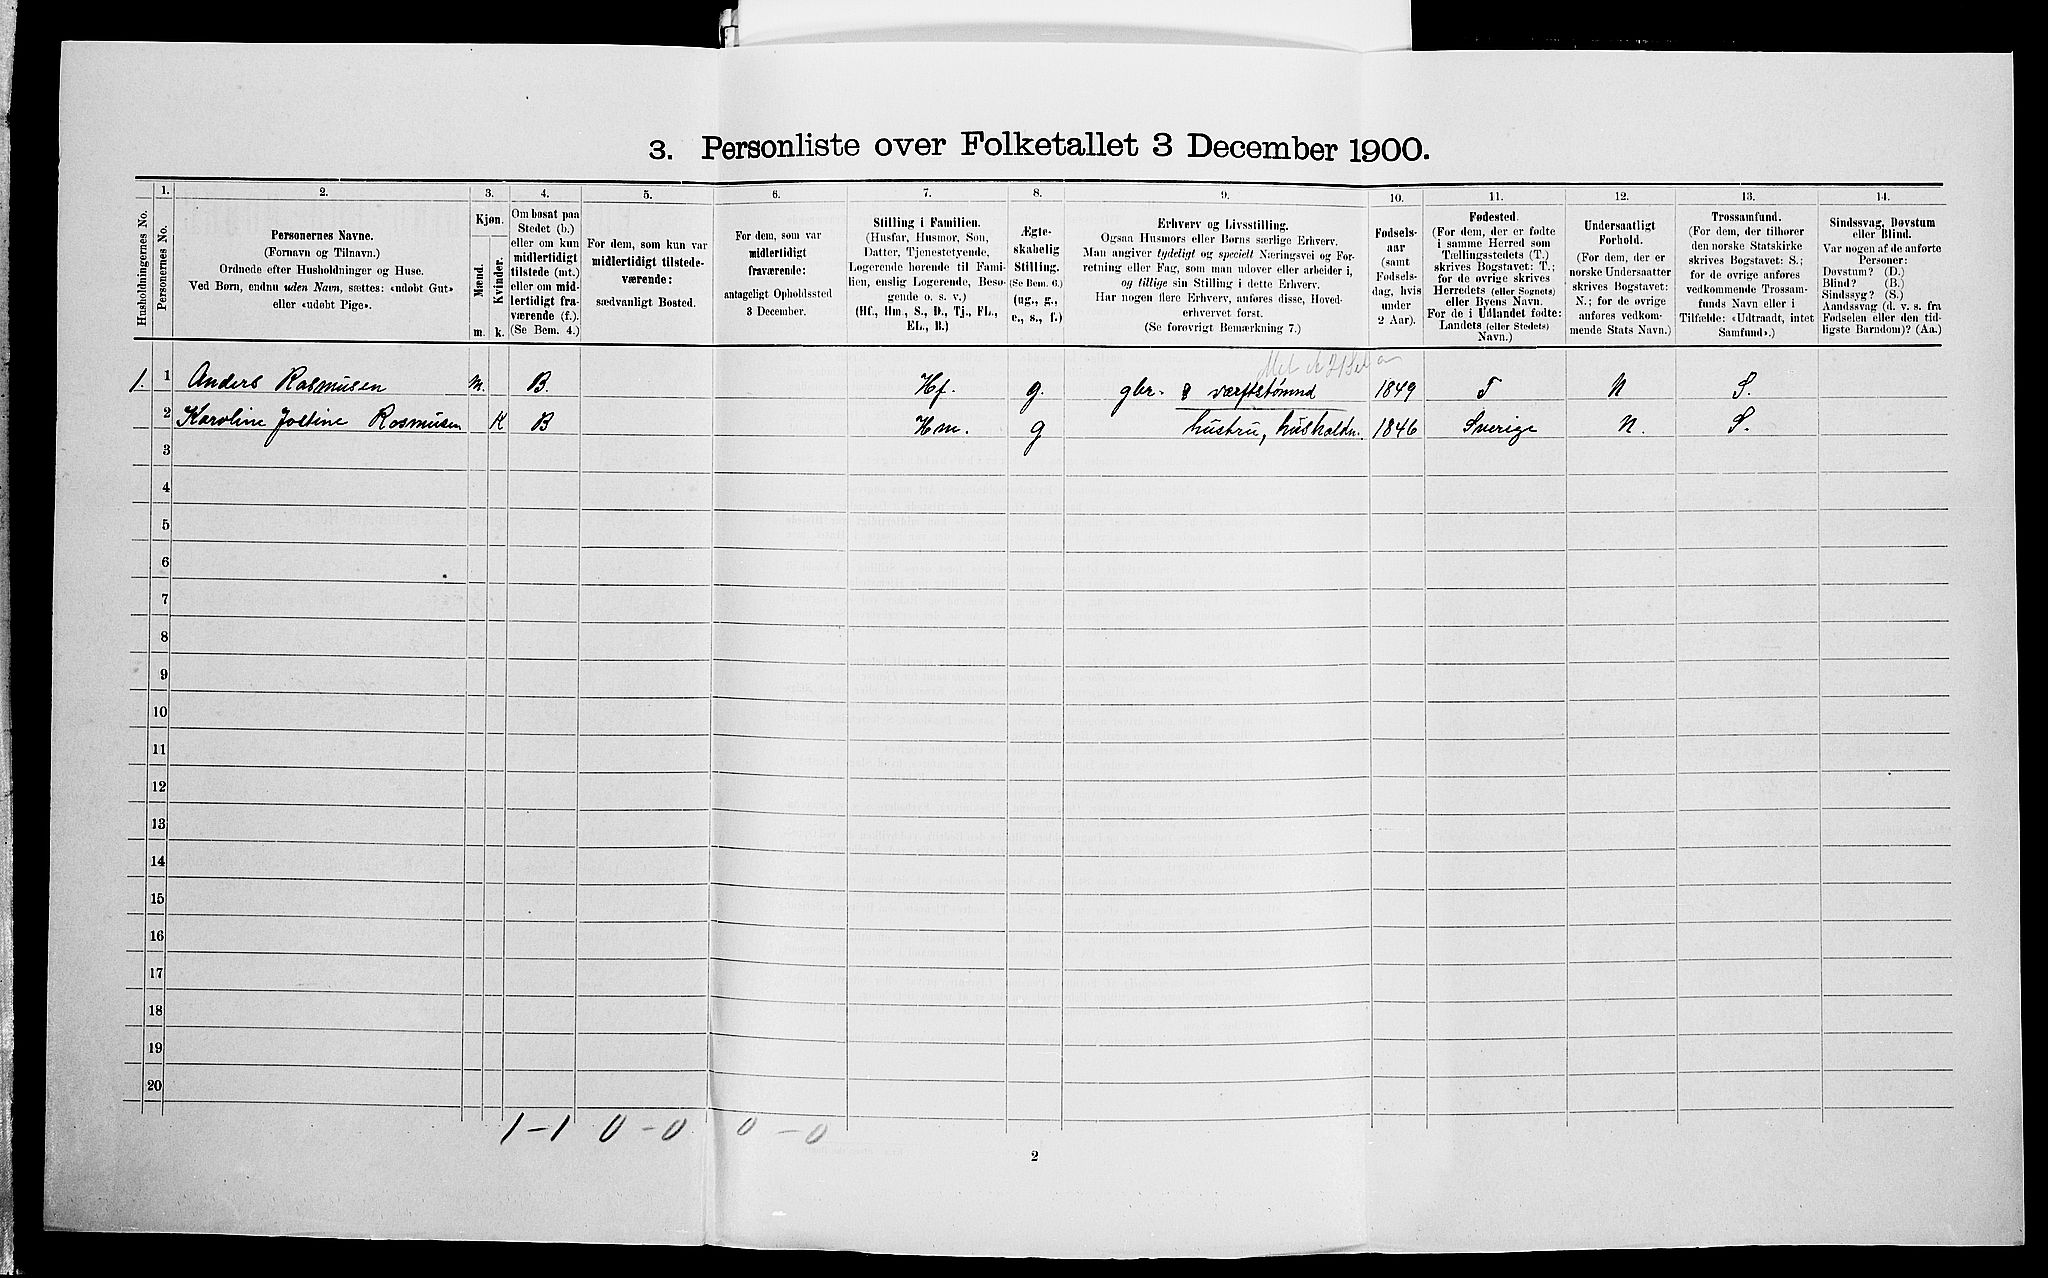 3. Personliste over Folketallet 3 December 1900.
1. 2. 3. 4. 5. 6. 7. 8. 9. 10. 11. 12. 13. 14.
Husholdningernes No.
Personernes No.
Personernes Navne.
(Fornavn og Tilnavn.)
Ordnede efter Husholdninger og Huse.
Ved Børn, endnu uden Navn, sættes: «udøbt Gut»
eller «udøbt Pige».
Kjøn.
Mænd.
Kvinder.
m. k.
Om bosat paa
Stedet (b.)
eller om kun
midlertidigt
tilstede (mt.)
eller om mid-
lertidigt fra-
værende (f.).
(Se Bem. 4.)
For dem, som kun var
midlertidigt tilstede-
værende:
sædvanligt Bosted.
For dem, som var
midlertidigt
fraværende:
antageligt Opholdssted
3 December.
Stilling i Familien.
(Husfar, Husmor, Søn,
Datter, Tjenestetyende,
Logerende hørende til Fami-
lien, enslig Logerende, Besø-
gende o. s. v.)
(Hf., Hm., S., D., Tj., FL.,
EL., B.)
Ægte-
skabelig
Stilling.
(Se Bem. 6.)
(ug., g.,
e., s., f.)
Erhverv og Livsstilling.
Ogsaa Husmors eller Børns særlige Erhverv.
Man angiver tydeligt og specielt Næringsvei og For-
retning eller Fag, som man udover eller arbeider i,
og tillige sin Stilling i dette Erhverv.
Har nogen flere Erhverv, anføres disse, Hoved-
erhvervet først.
(Se forøvrigt Bemærkning 7.)
Fødsels-
aar
(samt
Fødsels-
dag, hvis
under
2 Aar).
Fødested.
(For dem, der er fødte
i samme Herred som
Tællingsstedets (T.)
skrives Bogstavet: T.;
for de øvrige skrives
Herredets (eller Sognets)
eller Byens Navn.
For de i Udlandet fødte:
Landets (eller Stedets)
Navn.)
Undersaatligt
Forhold.
(For dem, der er
norske Undersaatter
skrives Bogstavet:
N.; for de øvrige
anføres vedkom-
mende Stats Navn.)
Trossamfund.
(For dem, der tilhører
den norske Statskirke
skrives Bogstavet: S.;
for de øvrige anføres
vedkommende Trossam-
funds Navn eller i
Tilfælde: «Udtraadt, intet
Samfund».)
Sindssvag, Døvstum
eller Blind.
Var nogen af de anførte
Personer:
Døvstum? (D.)
Blind? (B.)
Sindssyg? (S.)
Aandssvag (d. v. s. fra
Fødselen eller den tid-
ligste Barndom)? (Aa.)
1. 1 Anders Rasmusen m. B. Hf. g. gbr. & værftstømmd 1849 T N S.
2 Karoline Jostine Rasmusen K B Hm. g hustru, husholdn. 1846 Sverige N. S.
3
4
5
6
7
8
9
10
11
12
13
14
15
16
17
18
19
20
1-1 0-0 0-0
2